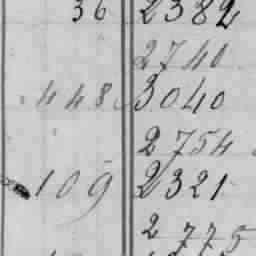 36 2382
2740
448 3040
2754
109 2321
2775